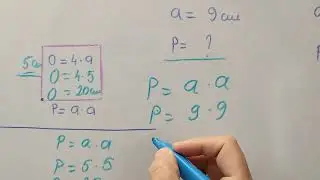 5cm
O = 4·a
O = 4·5
O = 20cm
P = a·a
P = a.a
P = 5·5
a = 9cm
P = ?
P = a·a
P = 9·9